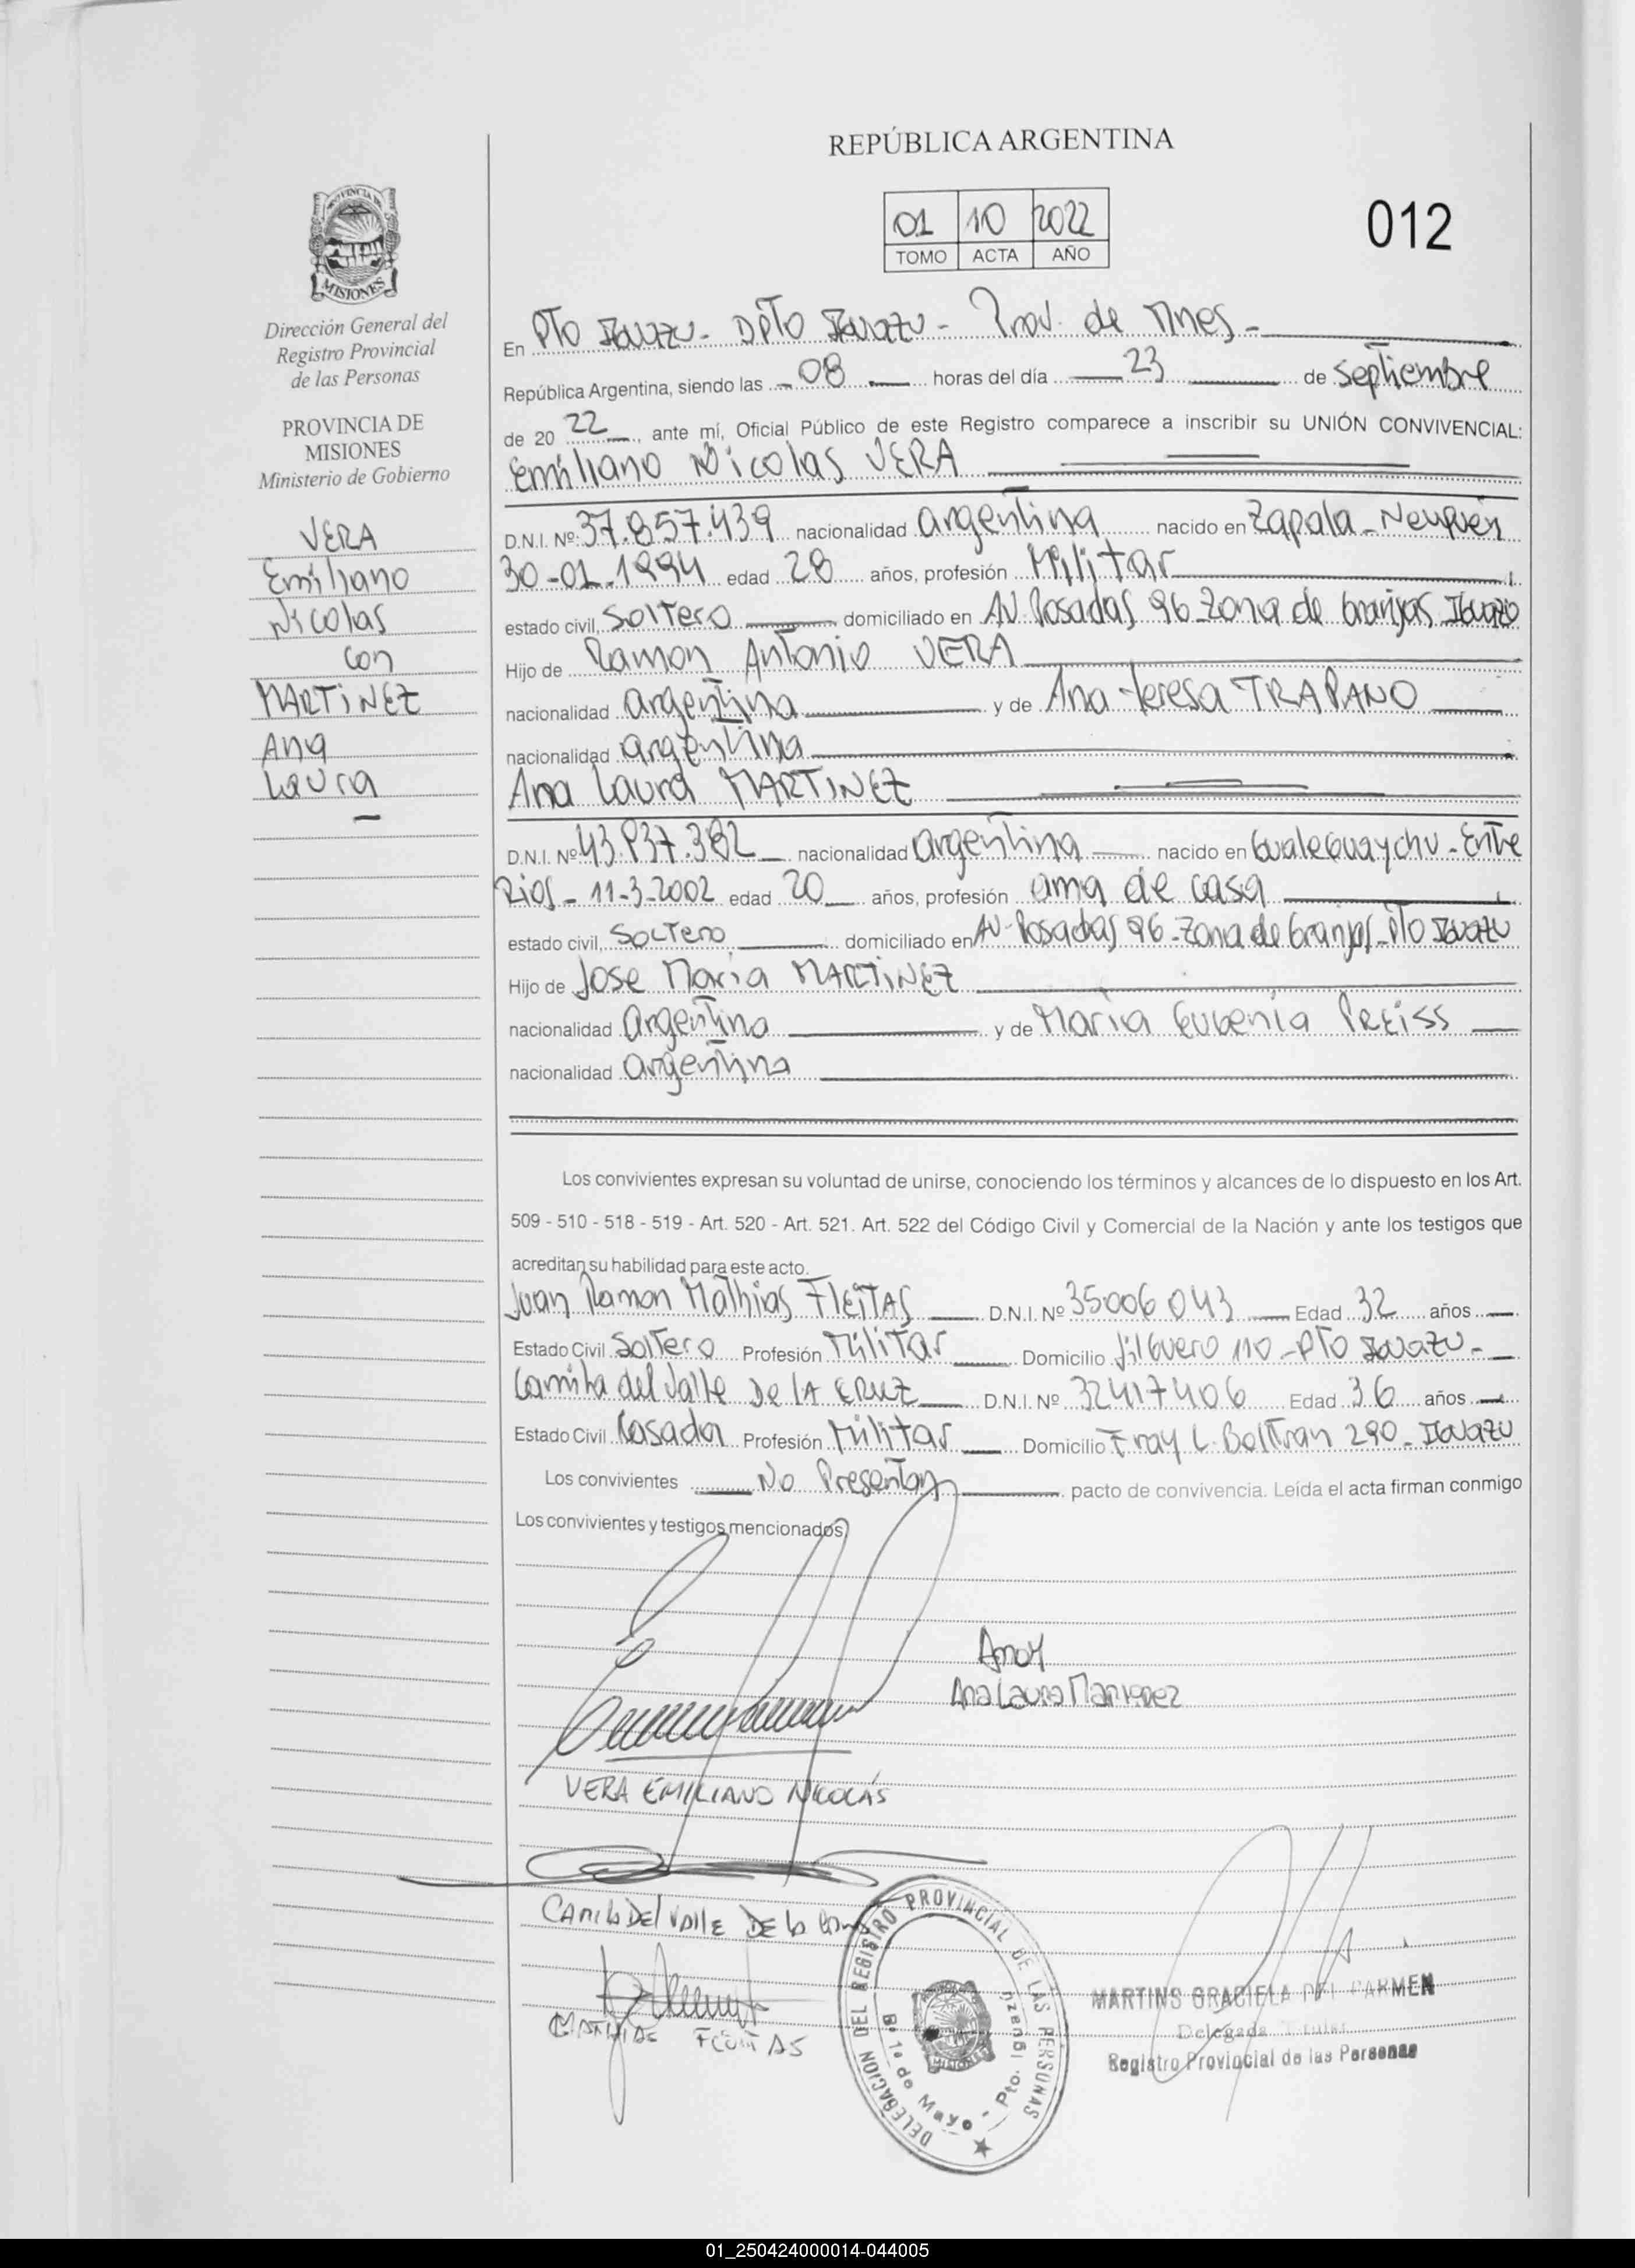 REPÚBLICA ARGENTINA
01 10 2022
TOMO ACTA AÑO
012
MISIONES
Dirección General del
Registro Provincial
de las Personas
PROVINCIA DE
MISIONES
Ministerio de Gobierno
VERA
Emiliano
Nicolas
con
MARTINEZ
Ana
Laura
En Pto Iguazu - Dpto Iguazu - Prov. de Mnes -
República Argentina, siendo las 08 horas del día 23 de septiembre
de 20 22, ante mí, Oficial Público de este Registro comparece a inscribir su UNIÓN CONVIVENCIAL:
Emiliano Nicolas VERA
D.N.I. Nº 37.857.439 nacionalidad argentina nacido en Zapala - Neuquén
30-01-1994 edad 28 años, profesión Militar
estado civil, Soltero domiciliado en AV. Rosadas 96 - Zona de Granjas Iguazu
Hijo de Ramon Antonio VERA
nacionalidad argentina y de Ana teresa TRAPANO
nacionalidad argentina
Ana Laura MARTINEZ
D.N.I. Nº 43.837.382 nacionalidad argentina nacido en Gualeguaychu - Entre
Rios - 11-3-2002 edad 20 años, profesión ama de casa
estado civil, Soltero domiciliado en AV- Rosadas 96 - Zona de Granjas - Pto Iguazu
Hijo de Jose Maria MARTINEZ
nacionalidad Argentino y de Maria Eugenia PREISS
nacionalidad argentina
Los convivientes expresan su voluntad de unirse, conociendo los términos y alcances de lo dispuesto en los Art.
509 - 510 - 518 - 519 - Art. 520 - Art. 521. Art. 522 del Código Civil y Comercial de la Nación y ante los testigos que
acreditan su habilidad para este acto.
Juan Ramon Mathias FLEITAS D.N.I. Nº 35006043 Edad 32 años
Estado Civil Soltero Profesión Militar Domicilio Jilguero 110 - Pto Iguazu -
Camila del Valle DE LA CRUZ D.N.I. Nº 32417406 Edad 36 años
Estado Civil Casada Profesión Militar Domicilio Fray L. Beltran 290 - Iguazu
Los convivientes No Presentan pacto de convivencia. Leída el acta firman conmigo
Los convivientes y testigos mencionados
Ana Laura Martinez
VERA EMILIANO NICOLÁS
Camila Del Valle De la Cruz
MATHIAS FLEITAS
DELEGACION DEL REGISTRO PROVINCIAL DE LAS PERSONAS
Bº 1º de Mayo - Pto. Iguazu
MISIONES
MARTINS GRACIELA DEL CARMEN
Delegada Titular
Registro Provincial de las Personas
01_250424000014-044005